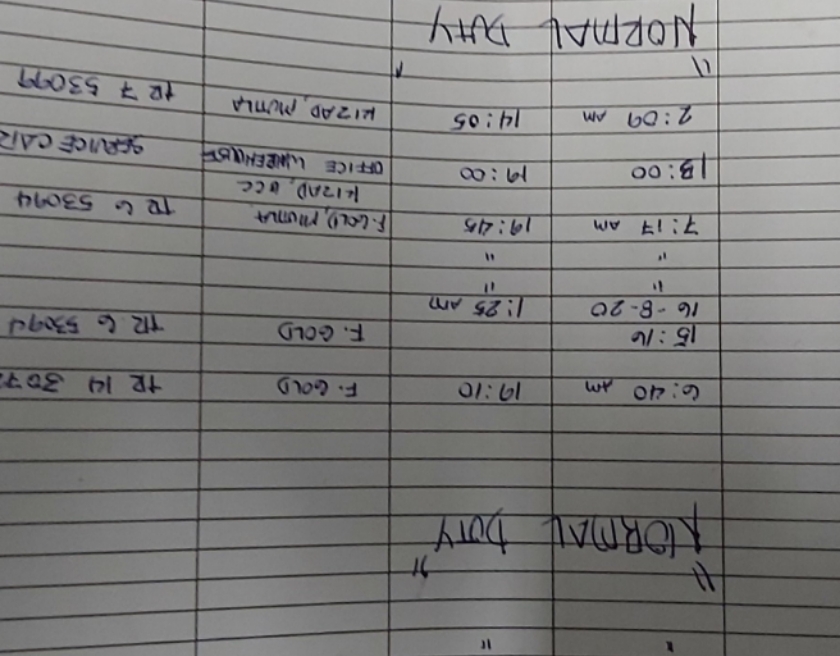 " "
" "
NORMAL DUTY
6:40 AM 19:10 F. GOLD TR 14 307
15:16 F. GOLD TR 6 53094
16-8-20 1:25 AM
" "
" "
7:17 AM 19:45 F. GOLD, MUTLA TR 6 53094
KIZAD,
13:00 19:00 OFFICE WAREHOUSE SERVICE CAR
2:09 AM 14:05 KIZAD, MUTLA TR 7 53099
" "
NORMAL DUTY